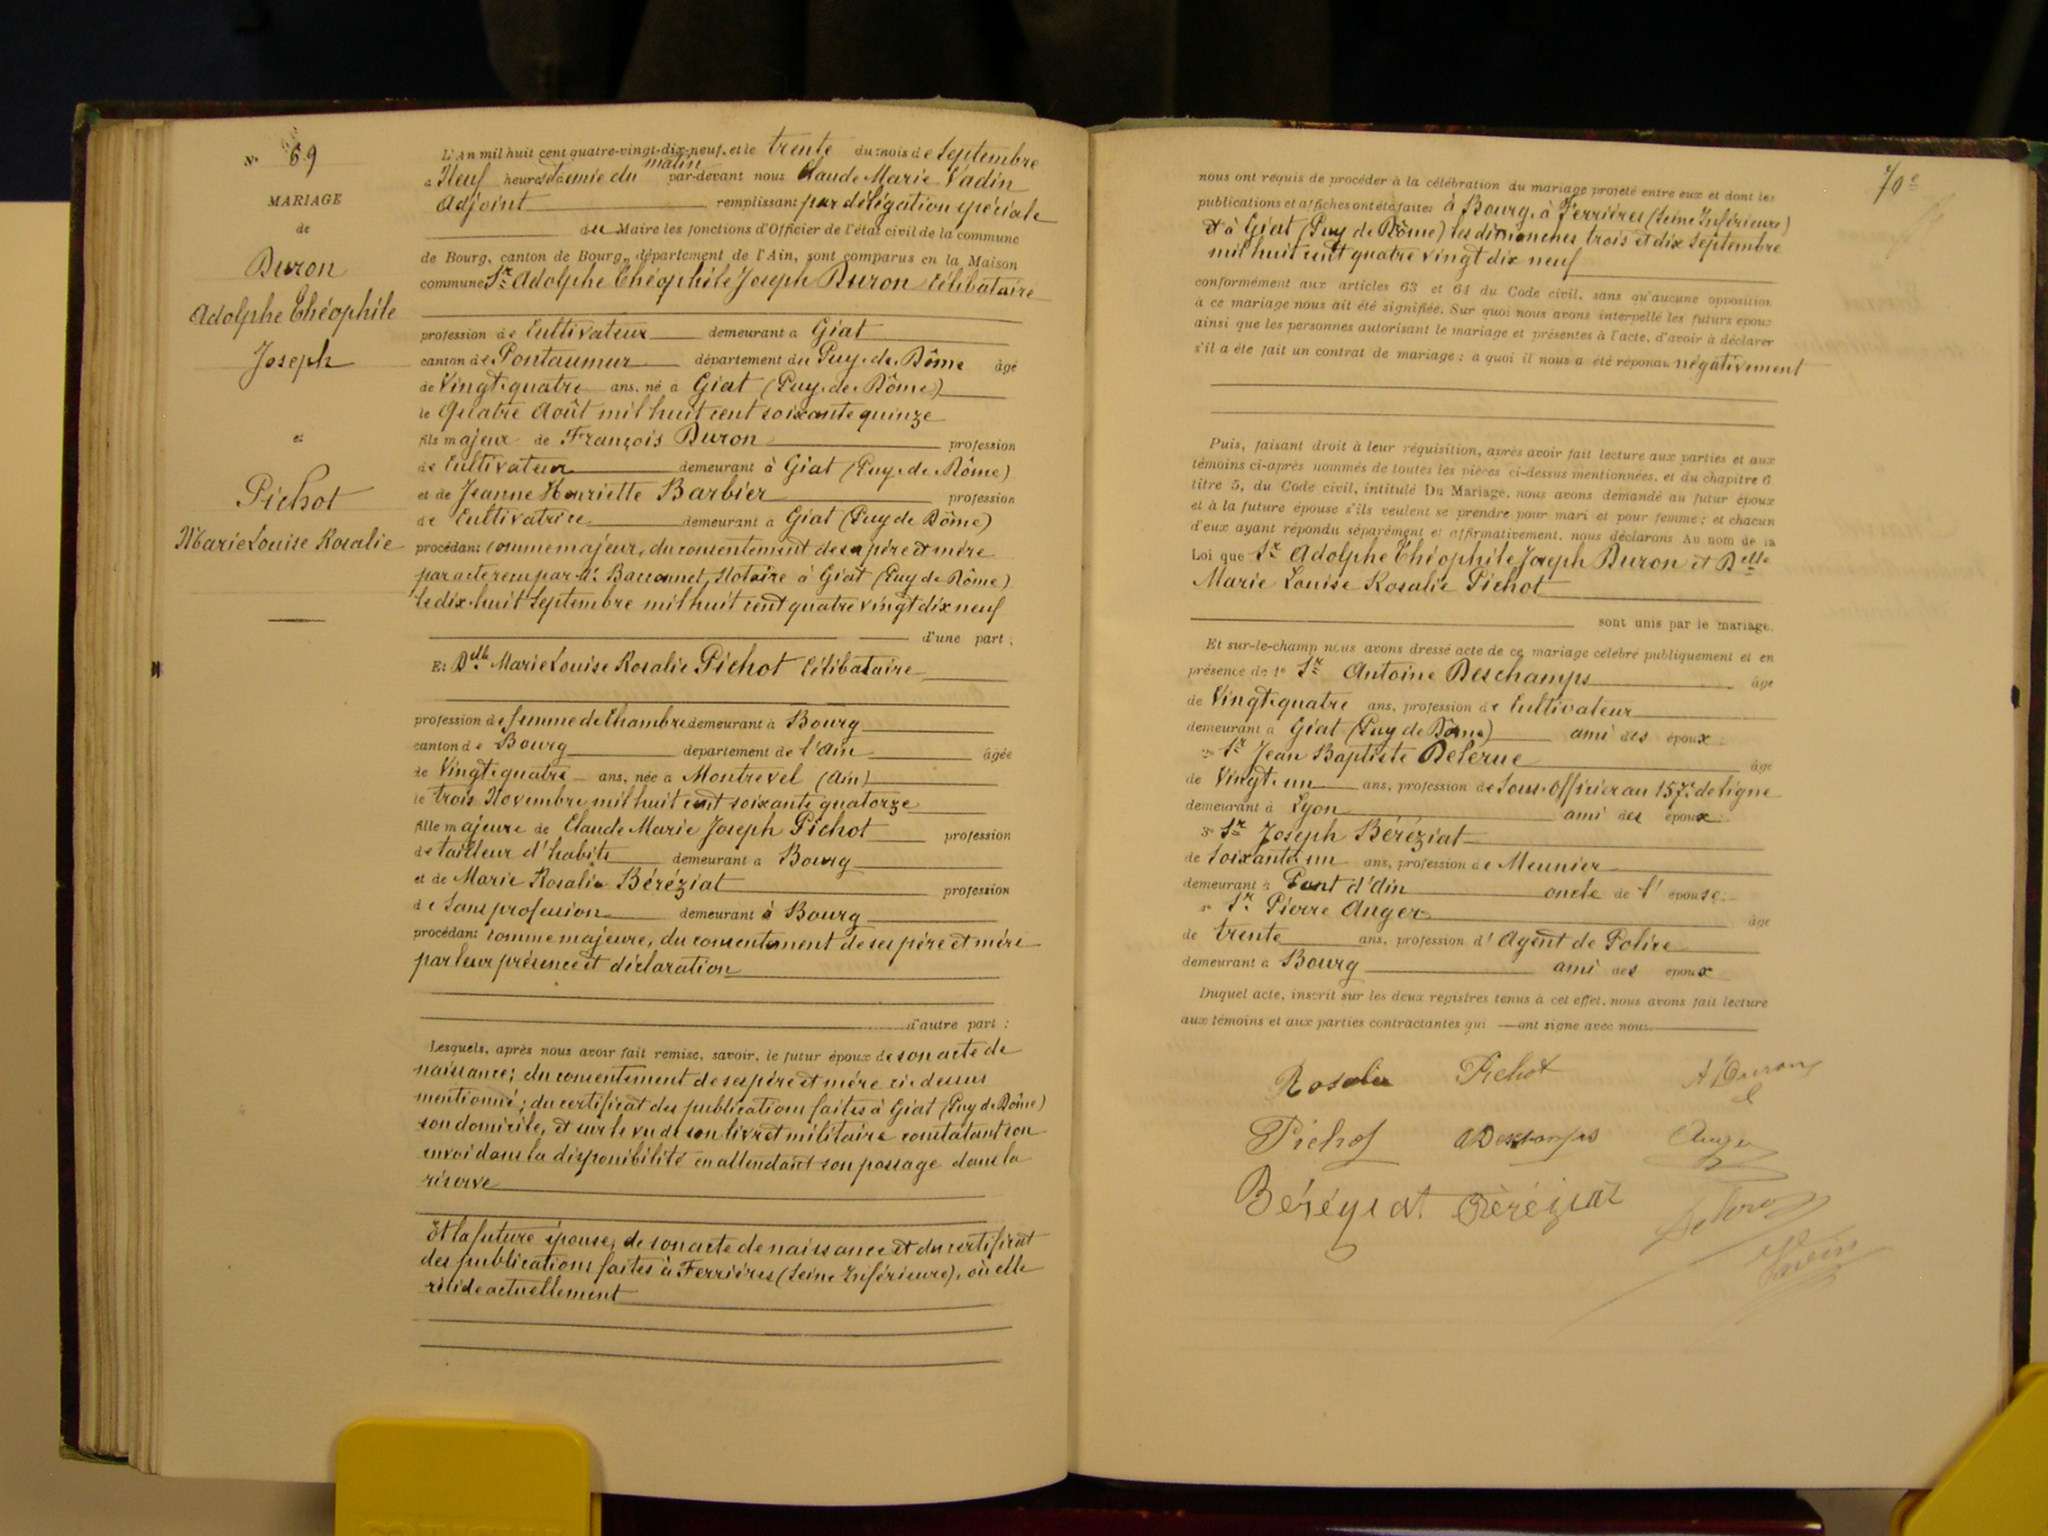 N° 69
MARIAGE
de
Duron
Adolphe Théophile
Joseph
et
Pichot
Marie Louise Rosalie
L'An mil huit cent quatre-vingt-dix-neuf, et le trente du mois de Septembre
à Neuf heures & demie du matin par-devant nous Claude Marie Vadin
Adjoint remplissant par délégation spéciale
du Maire les fonctions d'Officier de l'état civil de la commune
de Bourg, canton de Bourg, département de l'Ain, sont comparus en la Maison
commune Sr Adolphe Théophile Joseph Duron Célibataire
profession de Cultivateur demeurant à Giat
canton de Pontaumur département du Puy-de-Dôme âgé
de Vingt-quatre ans, né à Giat (Puy-de-Dôme)
le Quatre Août mil huit cent soixante quinze
fils majeur de François Duron profession
de Cultivateur demeurant à Giat (Puy-de-Dôme)
et de Jeanne Henriette Barbier profession
de Cultivatrice demeurant à Giat (Puy de Dôme)
procédant comme majeur, du consentement de ses père et mère
par acte reçu par Me Notaire à Giat (Puy de Dôme)
le dix-huit Septembre mil huit cent quatre vingt dix neuf
d'une part ;
Et Delle Marie Louise Rosalie Pichot Célibataire
profession de femme de Chambre demeurant à Bourg
canton de Bourg département de l'Ain âgée
de Vingt-quatre ans, née à Montrevel (Ain)
le trois Novembre mil huit cent soixante quatorze
fille majeure de Claude Marie Joseph Pichot profession
de tailleur d'habits demeurant à Bourg
et de Marie Rosalie Béréziat profession
de Sans profession demeurant à Bourg
procédant comme majeure, du consentement de ses père et mère
par leur présence et déclaration
d'autre part :
Lesquels, après nous avoir fait remise, savoir, le futur époux de son acte de
naissance ; du consentement de ses père et mère ci-dessus
mentionné ; du certificat des publications faites à Giat (Puy de Dôme)
son domicile, et sur le vu de son livret militaire constatant son
envoi dans la disponibilité en attendant son passage dans la
réserve
Et la future épouse, de son acte de naissance et du certificat
des publications faites à Ferrières (Seine Inférieure), où elle
réside actuellement
70e
nous ont requis de procéder à la célébration du mariage projeté entre eux et dont les
publications et affiches ont été faites à Bourg, à Ferrières (Seine Inférieure)
et à Giat (Puy de Dôme) les dimanches trois et dix Septembre
mil huit cent quatre vingt dix neuf
conformément aux articles 63 et 64 du Code civil, sans qu'aucune opposition
à ce mariage nous ait été signifiée. Sur quoi nous avons interpellé les futurs époux
ainsi que les personnes autorisant le mariage et présentes à l'acte, d'avoir à déclarer
s'il a été fait un contrat de mariage ; à quoi il nous a été répondu négativement
Puis, faisant droit à leur réquisition, après avoir fait lecture aux parties et aux
témoins ci-après nommés de toutes les pièces ci-dessus mentionnées, et du chapitre 6
titre 5, du Code civil, intitulé Du Mariage, nous avons demandé au futur époux
et à la future épouse s'ils veulent se prendre pour mari et pour femme ; et chacun
d'eux ayant répondu séparément et affirmativement, nous déclarons Au nom de la
Loi que Sr Adolphe Théophile Joseph Duron et Delle
Marie Louise Rosalie Pichot
sont unis par le mariage.
Et sur-le-champ nous avons dressé acte de ce mariage célébré publiquement et en
présence de 1° Sr Antoine Deschamps âgé
de Vingt-quatre ans, profession de Cultivateur
demeurant à Giat (Puy de Dôme) ami des époux ;
2° Sr Jean Baptiste Delerue âgé
de Vingt-un ans, profession de Sous-Officier au 157e de ligne
demeurant à Lyon ami des époux
3° Sr Joseph Béréziat
de Soixante-un ans, profession de Meunier
demeurant à Pont d'Ain oncle de l'épouse
Sr Pierre Auger âgé
de trente ans, profession d'Agent de Police
demeurant à Bourg ami des époux
Duquel acte, inscrit sur les deux registres tenus à cet effet, nous avons fait lecture
aux témoins et aux parties contractantes qui ont signé avec nous.
Rosalie Pichot A Duron
Pichot ADeschamps Auger
Béréziat Béréziat